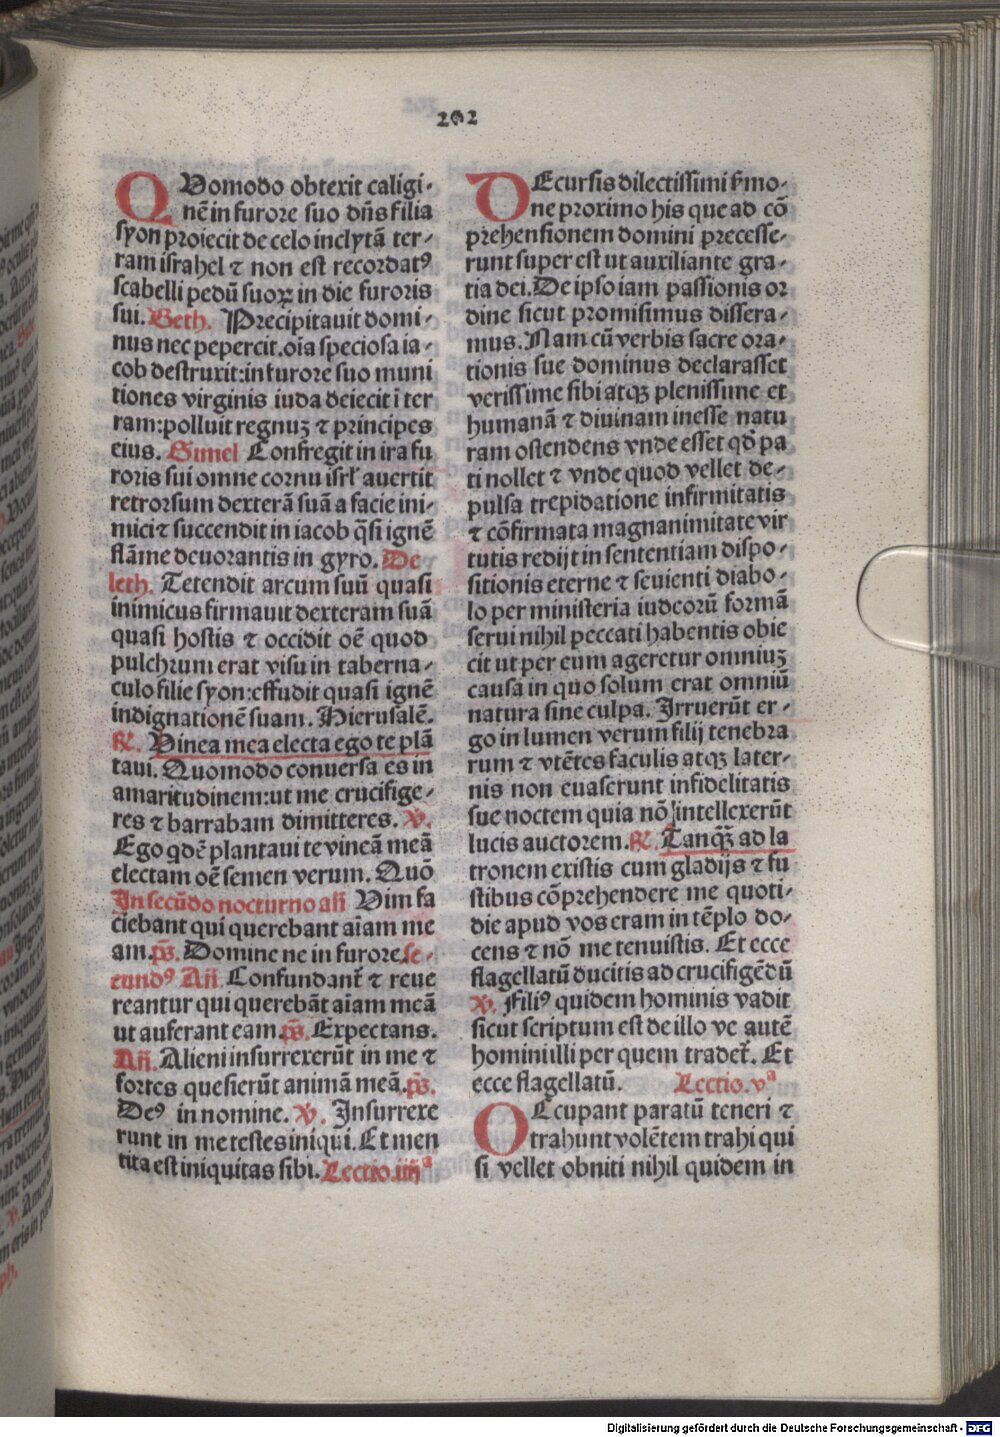 202
QVomodo obtexit caligi-
nē in furore suo dn̄s filia
syon proiecit de celo inclytā ter-
ram israhel ⁊ non est recordatꝰ
scabelli pedū suoꝝ in die furoris
sui. Beth. Precipitauit domi-
nus nec pepercit. oīa speciosa ia-
cob destruxit: in furore suo muni
tiones virginis iuda deiecit ī ter
ram: polluit regnuꝫ ⁊ principes
eius. Gimel Confregit in ira fu
roris sui omne cornu isrl̄ auertit
retrorsum dexterā suā a facie ini-
mici ⁊ succendit in iacob q̄si ignē
flāme deuorantis in gyro. De
leth. Tetendit arcum suū quasi
inimicus firmauit dexteram suā
quasi hostis ⁊ occidit oē quod
pulchrum erat visu in taberna-
culo filie syon: effudit quasi ignē
indignationē suam. Hierusalē.
℟. Vinea mea electa ego te plā
taui. Quomodo conuersa es in
amaritudinem: ut me crucifige-
res ⁊ barrabam dimitteres. ℣.
Ego qdē plantaui te vineā meā
electam oē semen verum. Quō
In secūdo nocturno añ Vim fa
ciebant qui querebant aīam me
am. ps̄. Domine ne in furore. se-
cundꝰ Añ. Confundant̄ ⁊ reue
reantur qui querebāt aīam meā
ut auferant eam. ps̄. Expectans.
Añ. Alieni insurrexerūt in me ⁊
fortes quesierūt animā meā. ps̄.
Deꝰ in nomine. ℣. Insurrexe
runt in me testes iniqui. Et men
tita est iniquitas sibi. Lectio. iiijᵃ
DEcursis dilectissimi s̄mo-
ne proximo his que ad cō
prehensionem domini precesse-
runt super est ut auxiliante gra-
tia dei. De ipso iam passionis or
dine sicut promisimus dissera-
mus. Nam cū verbis sacre ora-
tionis sue dominus declarasset
verissime sibi atqꝫ plenissime et
humanā ⁊ diuinam inesse natu
ram ostendens vnde esset qd̄ pa
ti nollet ⁊ vnde quod vellet de-
pulsa trepidatione infirmitatis
⁊ cōfirmata magnanimitate vir
tutis redijt in sententiam dispo-
sitionis eterne ⁊ seuienti diabo-
lo per ministeria iudeorū formā
serui nihil peccati habentis obie
cit ut per eum ageretur omniuꝫ
causa in quo solum erat omniū
natura sine culpa. Irruerūt er-
go in lumen verum filij tenebra
rum ⁊ vtētes faculis atqꝫ later-
nis non euaserunt infidelitatis
sue noctem quia nō intellexerūt
lucis auctorem. ℟. Tanqꝫ ad la
tronem existis cum gladijs ⁊ fu
stibus cōprehendere me quoti-
die apud vos eram in tēplo do-
cens ⁊ nō me tenuistis. Et ecce
flagellatū ducitis ad crucifigēdū
℣. Filiꝰ quidem hominis vadit
sicut scriptum est de illo ve autē
homini illi per quem tradet̄. Et
ecce flagellatū. Lectio. vᵃ
OCcupant paratū teneri ⁊
trahunt volētem trahi qui
si vellet obniti nihil quidem in
Digitalisierung gefördert durch die Deutsche Forschungsgemeinschaft - DFG